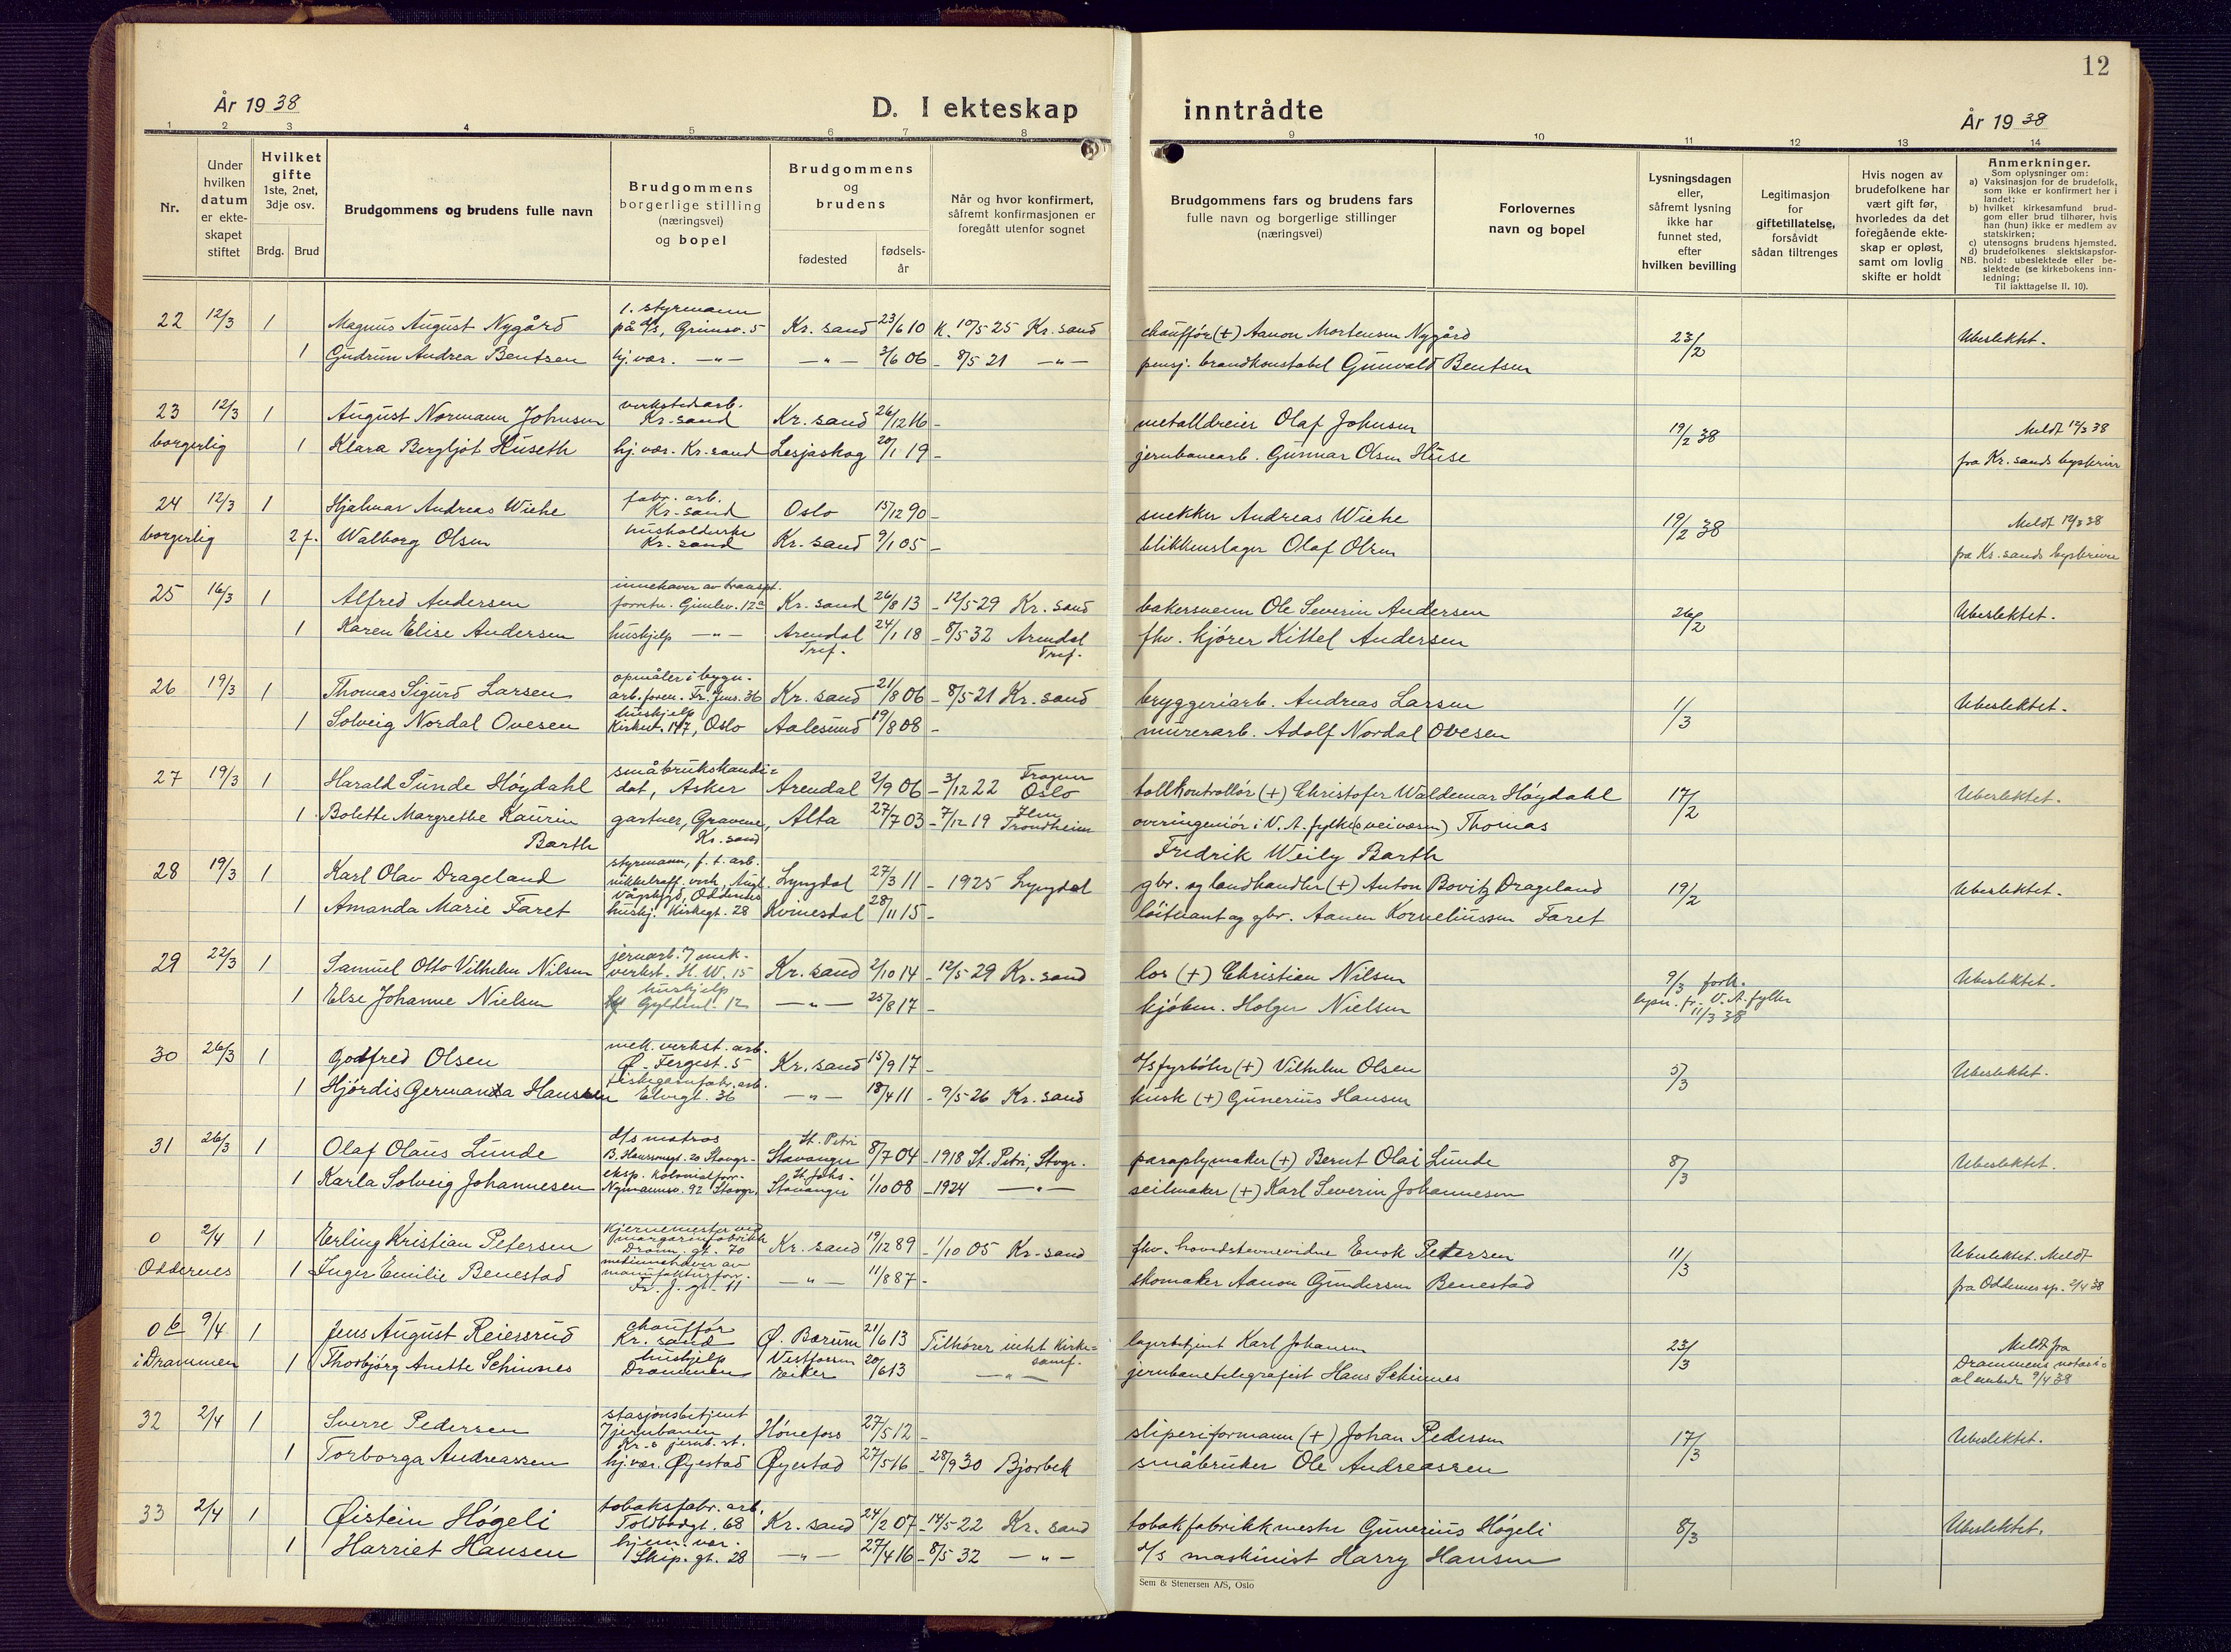 12
År 1938
D. I ekteskap inntrådte
År 1938
1 2 3 4 5 6 7 8 9 10 11 12 13 14
Nr.
Under hvilken datum er ekteskapet stiftet
Hvilket gifte 1ste, 2net, 3dje osv.
Brdg. Brud
Brudgommens og brudens fulle navn
Brudgommens borgerlige stilling (næringsvei) og bopel
Brudgommens og brudens
fødested
fødselsår
Når og hvor konfirmert, såfremt konfirmasjonen er foregått utenfor sognet
Brudgommens fars og brudens fars fulle navn og borgerlige stillinger (næringsvei)
Forlovernes navn og bopel
Lysningsdagen eller, såfremt lysning ikke har funnet sted, efter hvilken bevilling
Legitimasjon for giftetillatelse, forsåvidt sådan tiltrenges
Hvis nogen av brudefolkene har vært gift før, hvorledes da det foregående ekteskap er opløst, samt om lovlig skifte er holdt
Anmerkninger.
Som oplysninger om:
a) Vaksinasjon for de brudefolk, som ikke er konfirmert her i landet;
b) hvilket kirkesamfund brudgom eller brud tilhører, hvis han (hun) ikke er medlem av statskirken;
c) utensogns brudens hjemsted.
d) brudefolkenes slektskapsforhold: ubeslektede eller beslektede (se kirkebokens innledning;
NB. Til iakttagelse ll. 10).
22 12/3 1 Magnus August Nygård 1. styrmann på d/s, Grimsv. 5 Kr. sand 23/6 10 K. 10/5 25 Kr. sand chauffór (+) Aanon Mortensen Nygård 23/2 Ubeslektet.
1 Gudrun Andrea Bentsen hj. vær. —"— —"— 3/6 06 - 8/5 21 —"— pensj. brandkonstabel Gunvald Bentsen
23 12/3 1 August Normann Johnsen verkstedarb. Kr. sand Kr. sand 26/12 16 - metalldreier Olaf Johnsen 19/2 38 Meldt 12/3 38
borgerlig 1 Klara Bergljot Huseth hj. vær. Kr. sand Lesjaskog 20/1 19 - jernbanearb. Gunnar Olsen Huse fra Kr. sands byskriver
24 12/3 1 Hjalmar Andreas Wiehe fabr. arb. Kr. sand Oslo 15/12 90 - snekker Andreas Wiehe 19/2 38 Meldt 12/3 38
borgerlig 2 f. Walborg Olsen husholderske Kr. sand Kr. sand 9/1 05 - blikkenslager Olaf Olsen fra Kr. sands byskriver
25 16/3 1 Alfred Andersen innehaver av transpt. forretn. Gimlev. 12a Kr. sand 26/8 13 - 12/5 29 Kr. sand bakersvenn Ole Severin Andersen 26/2 Ubeslektet.
1 Karen Elise Andersen hushjelp —"— Arendal Tref. 24/1 18 - 8/5 32 Arendal Tref. fhv. kjórer Kittel Andersen
26 19/3 1 Thomas Sigurd Larsen opmåler i bygn. arb. foren. Fr. Jens. 36 Kr. sand 21/8 06 - 8/5 21 Kr. sand bryggeriarb. Andreas Larsen 1/3 Ubeslektet.
1 Solveig Nordal Ovesen hushjelp Kirkev. 147, Oslo Aalesund 19/8 08 - murerarb. Adolf Nordal Ovesen
27 19/3 1 Harald Sunde Hóydahl småbrukskandidat, Asker Arendal 2/9 06 - 3/12 22 Frogner Oslo tollkontrollór (+) Christofer Waldemar Hóydahl 17/2 Ubeslektet.
1 Bolette Margrethe Kaurin Barth gartner, Gravene, Kr. sand Alta 27/7 03 - 7/12 19 Ilen Trondheim overingeniór i V. A. fylke (veivæsen) Thomas
Fredrik Weily Barth
28 19/3 1 Karl Olav Drageland styrmann, f. t. arb. nikkelraff. verk, Augl. Vågsbygd, Oddernes Lyngdal 27/3 11 - 1925 Lyngdal gbr. og landhandler (+) Anton Bovitz Drageland 19/2 Ubeslektet.
1 Amanda Marie Faret hushj. Kirkegt. 28 Kvinesdal 28/11 15 - lóitnant og gbr. Aanen Korneliussen Faret
29 22/3 1 Samuel Otto Vilhelm Nilsen jernarb. mek. verkst. H. W. 15 Kr. sand 2/10 14 - 12/5 29 Kr. sand los (+) Christian Nilsen 9/3 fork. Ubeslektet.
1 Else Johanne Nielsen hushjelp Gyldenl. 12 —"— 25/8 17 - kjóbm. Holger Nielsen lysn. fr. V. A. fylke 11/3 38
30 26/3 1 Godfred Olsen mek. verkst. arb. Ø. Fergest. 5 Kr. sand 15/9 17 - d/s fyrbóter (+) Vilhelm Olsen 5/3 Ubeslektet.
1 Hjórdis Germanda Hansen fiskegarnfabr. arb. Elvegt. 36 —"— 18/4 11 - 9/5 26 Kr. sand kusk (+) Gunerius Hansen
31 26/3 1 Olaf Olaus Lunde d/s matros B. Hanssonsgt. 20 Stavgr. St. Petri Stavanger 8/7 04 - 1918 St. Petri, Stvgr. paraplymaker (+) Bernt Olai Lunde 8/3 Ubeslektet.
1 Karla Solveig Johannesen eksp. kolonialforr. Nymannsv. 92 Stavgr. St. Johs. Stavanger 1/10 08 - 1924 —"— seilmaker (+) Karl Severin Johannesen
0 2/4 1 Erling Kristian Petersen Kjernemester ved margarinfabrikk Dronn. gt. 70 Kr. sand 19/12 89 - 1/10 05 Kr. sand fhv. hovedstevnevidne Enok Petersen 11/3 Ubeslektet. Meldt
Oddernes 1 Inger Emilie Benestad medinnehaver av manufakturforr. Fr. J. gt. 11 —"— 11/8 87 - skomaker Aanon Gundersen Benestad fra Oddernes sp. 2/4 38
0 b 9/4 1 Jens August Reiersrud chauffór Kr. sand Ø. Bærum 21/6 13 Tilhører intet kirkesamf. lagerbetjent Karl Johansen 23/3 Meldt fra
i Drammen 1 Thorbjórg Anette Schinnes hushjelp Drammen Vestfossen Eiker 20/6 13 —"— jernbanetelegrafist Hans Schinnes Drammens notarialembede 9/4 38
32 2/4 1 Sverre Pedersen stasjonsbetjent jernbanen Kr. s jernb. st. Hónefoss 27/5 12 - sliperiformann (+) Johan Pedersen 17/3 Ubeslektet.
1 Torborga Andreassen hj. vær. Øyestad Øyestad 27/5 16 - 28/9 30 Bjorbek småbruker Ole Andreassen
33 2/4 1 Øistein Hógeli tobaksfabr. arb. Toldbodgt. 68 Kr. sand 24/2 07 - 14/5 22 Kr. sand tobakfabrikkmester Gunerius Hógeli 8/3 Ubeslektet.
1 Harriet Hansen hjem. vær. Skip. gt. 28 —"— 27/4 16 - 8/5 32 —"— d/s maskinist Harry Hansen
Sem & Stenersen A/S, Oslo